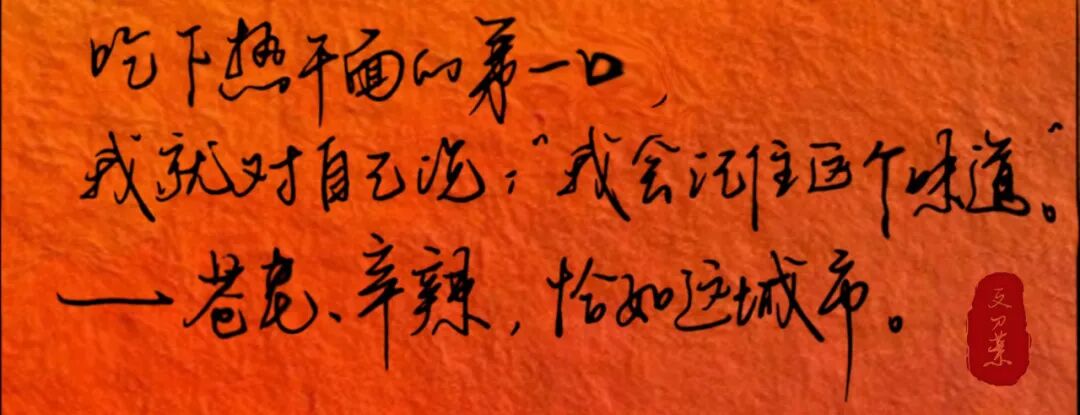 吃下热干面的第一口，
我就对自己说：“我会记住这个味道。”
——苍老、辛辣，恰如这城市。